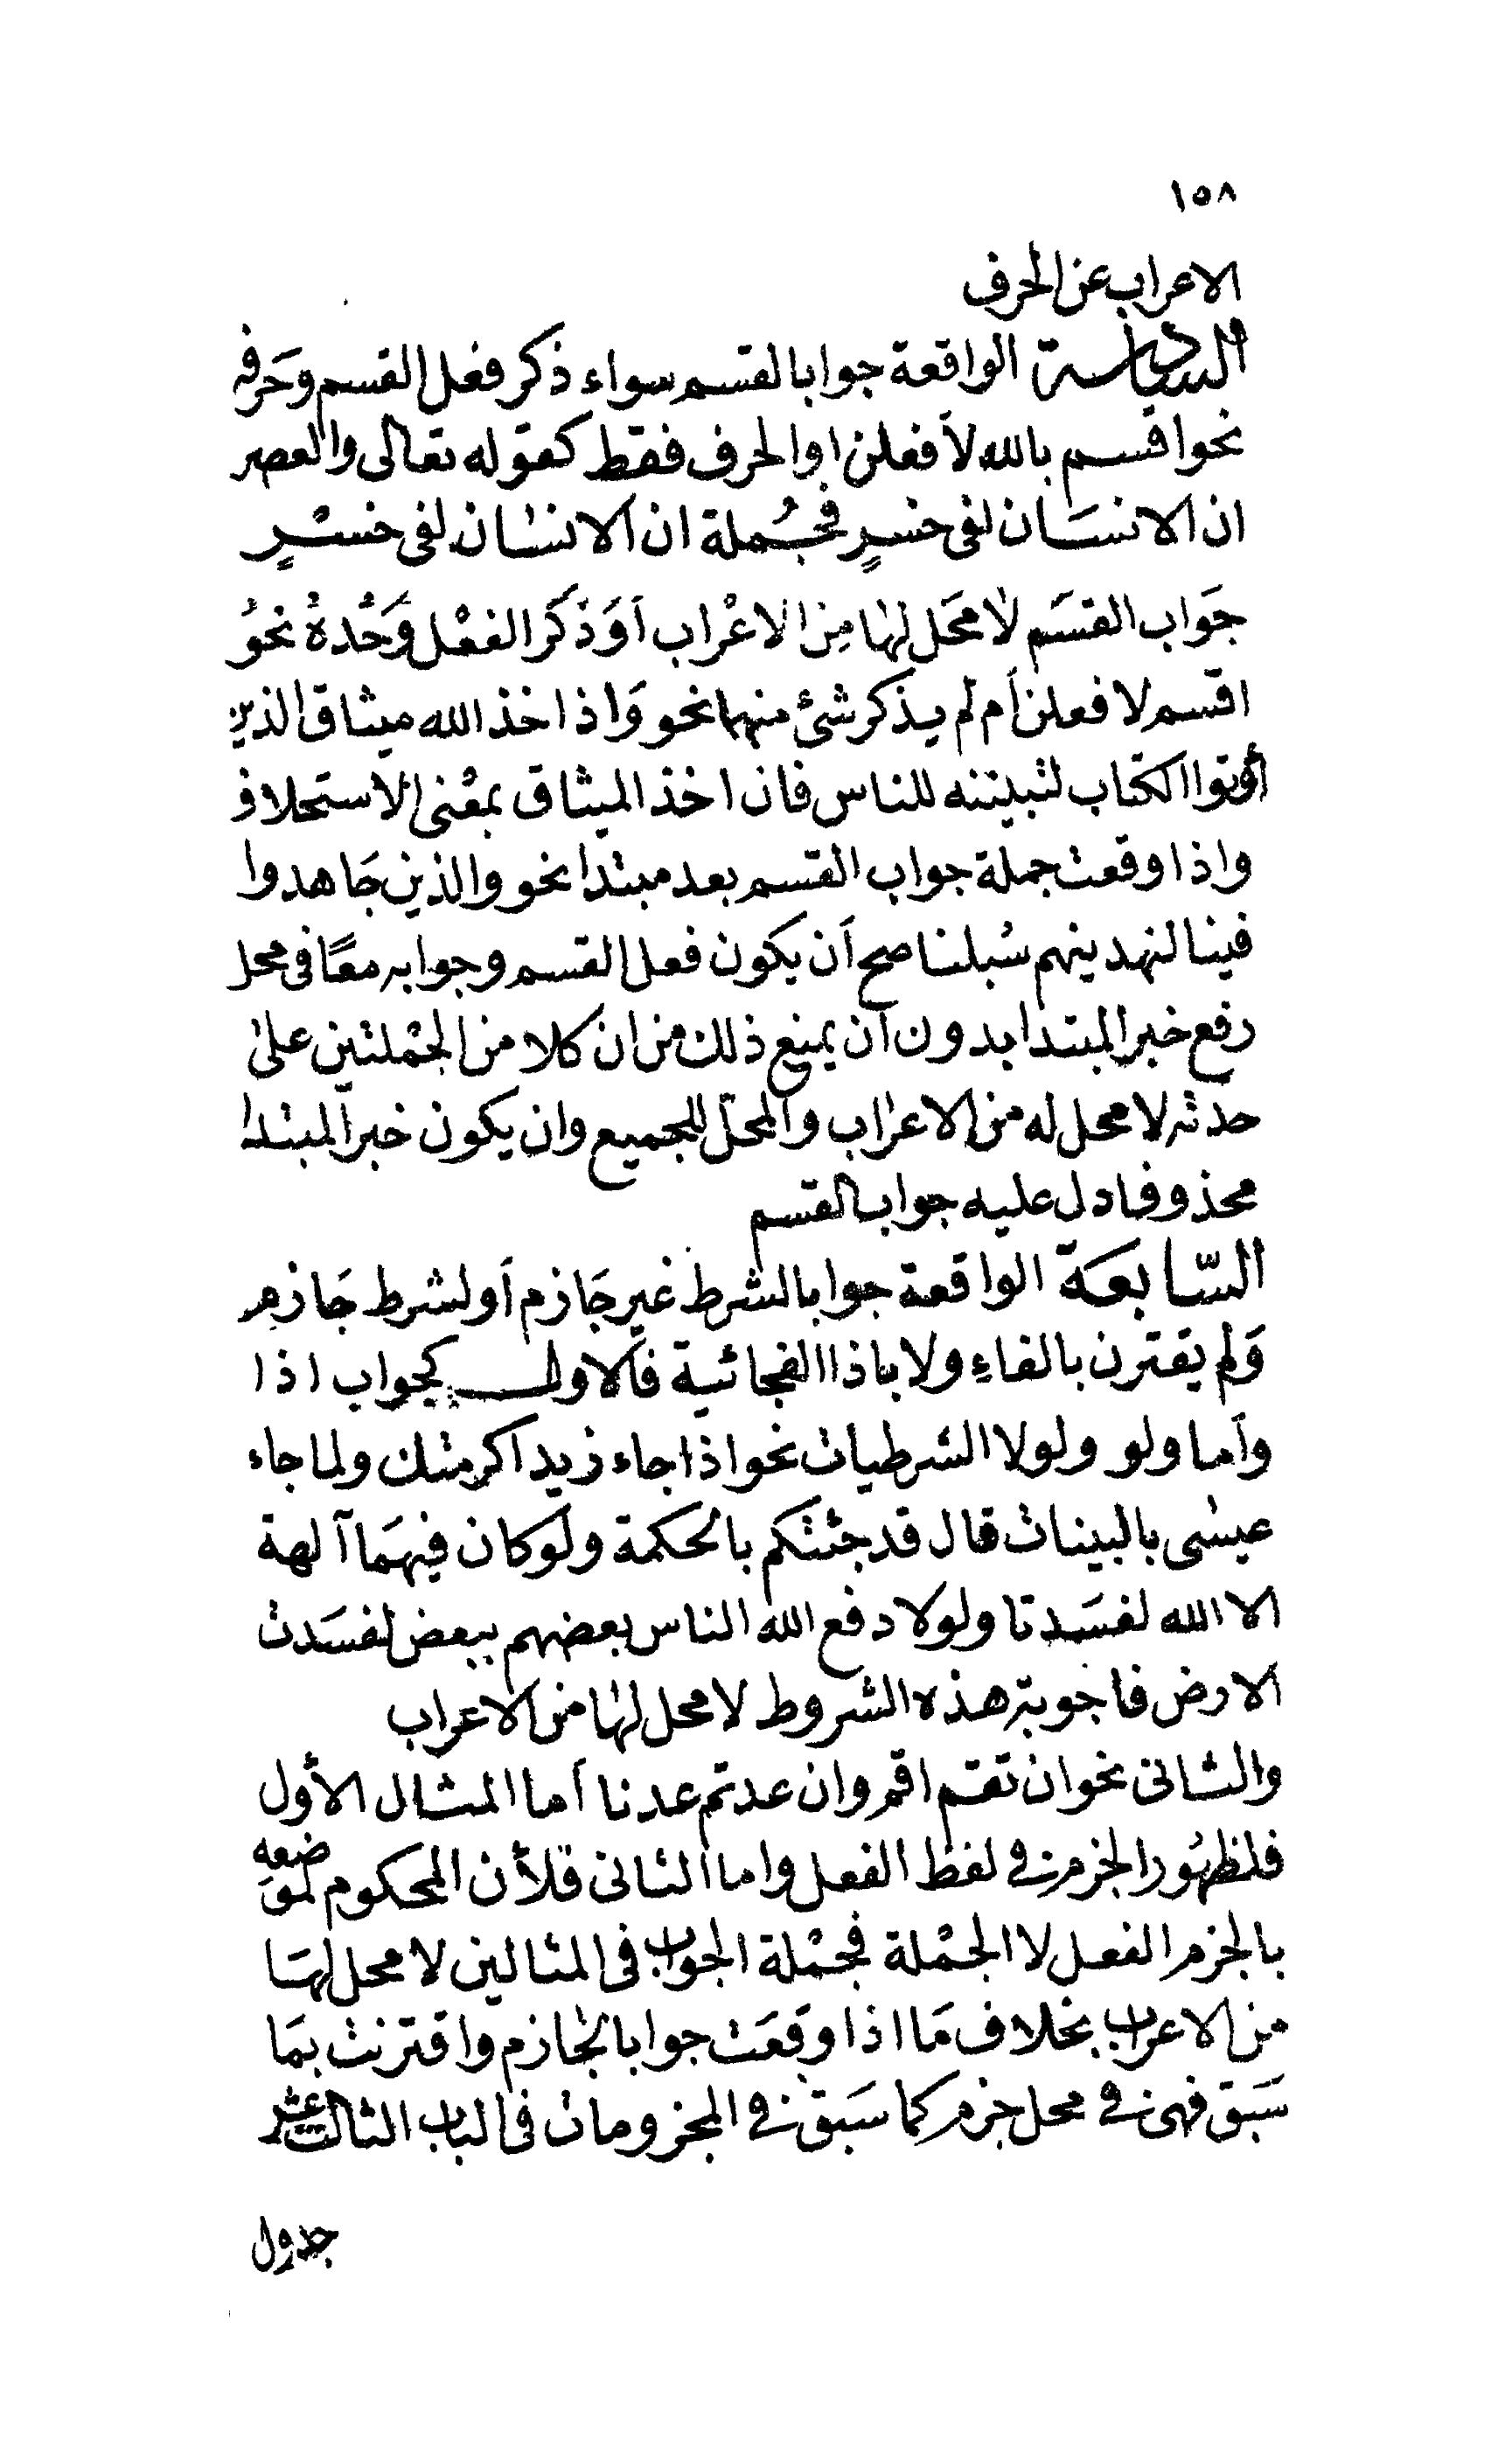 ١٥٨
الاعراب عن الحرف
السادسة الواقعة جوابا لقسم سواء ذكر فعل القسم وحَرفه
نحو اقسم بالله لأفعلن او الحرف فقط كقوله تعالى والعصر
ان الانسَان لفى خسرٍ فجُملة ان الانسٰان لفى خسْرٍ
جَواب القسَم لٰا محَل لهٰا مِن الاعْرٰاب أوَ ذكَر الفعْل وَحْدهُ نحوُ
اقسم لا فعلن أم لم يذكر شئ منهما نحو وَاذ اخذ الله ميثاق الذين
أوتوا الكتاب لتبيننه للناس فان اخذ الميثاق بمعْنى الاستحلاف
واذا وقعت جملة جواب القسم بعد مبتدا نحو والذين جَاهدوا
فينا لنهدينهم سُبلنا صح أن يكون فعل القسم وجوابه معًا فى محل
رفع خبر المبتدا بدون أن يمنع ذلك من ان كلا من الجمْلتين علىٰ
حدته لا محل له من الاعرٰاب والمحلّ للجميع وان يكون خبر المبتدا
محذوفا دل عليه جواب القسم
السّابعَة الواقعة جوابا لشرط غير جَازم أو لشرط جَازم
وَلم يقترن بالفاءِ ولا باذا الفجائية فالاول كجواب اذا
وأما ولو ولولا الشرطيات نحو اذا جاء زيد اكرمتك ولما جاء
عيسٰى بالبينات قال قد جئتكم بالحكمة ولوكان فيهمَا آلهة
الا الله لفسَدتا ولولا دفع الله الناس بعضهم ببعض لفسَدت
الارض فاجوبة هذه الشروط لا محل لهٰا من الاعراب
والثانى نحو ان تقم اقم وان عدتم عدنا أما المثال الأول
فلظهُور الجزم فى لفظ الفعل واما الثانى فلأن المحكوم لموضعه
بالجزم الفعل لا الجمْلة فجمْلة الجواب فى المثالين لا محل لهَا
من الاعراب بخلاف مَا اذا وقعَت جوابا لجٰازم واقترنت بمَا
سَبق فهى فى محل جزم كما سَبق فى المجزومات فى الباب الثالث عشر
جدول